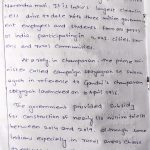 Narendra modi. It is India's largest cleanli-
ness drive to date with three million govern-
ment employees and students from all parts
of India participating in urban cities,
and rural communities.
At a rally in champaran, the prime min-
ister called campaign satyagrah se swach-
agrah in reference to Gandhi's champaran
satyagrah launched on 10 April 1916.
The government provided subsidy
for construction of nearly 110 million toilets
between 2014 and 2019, although some
Indians especially in rural